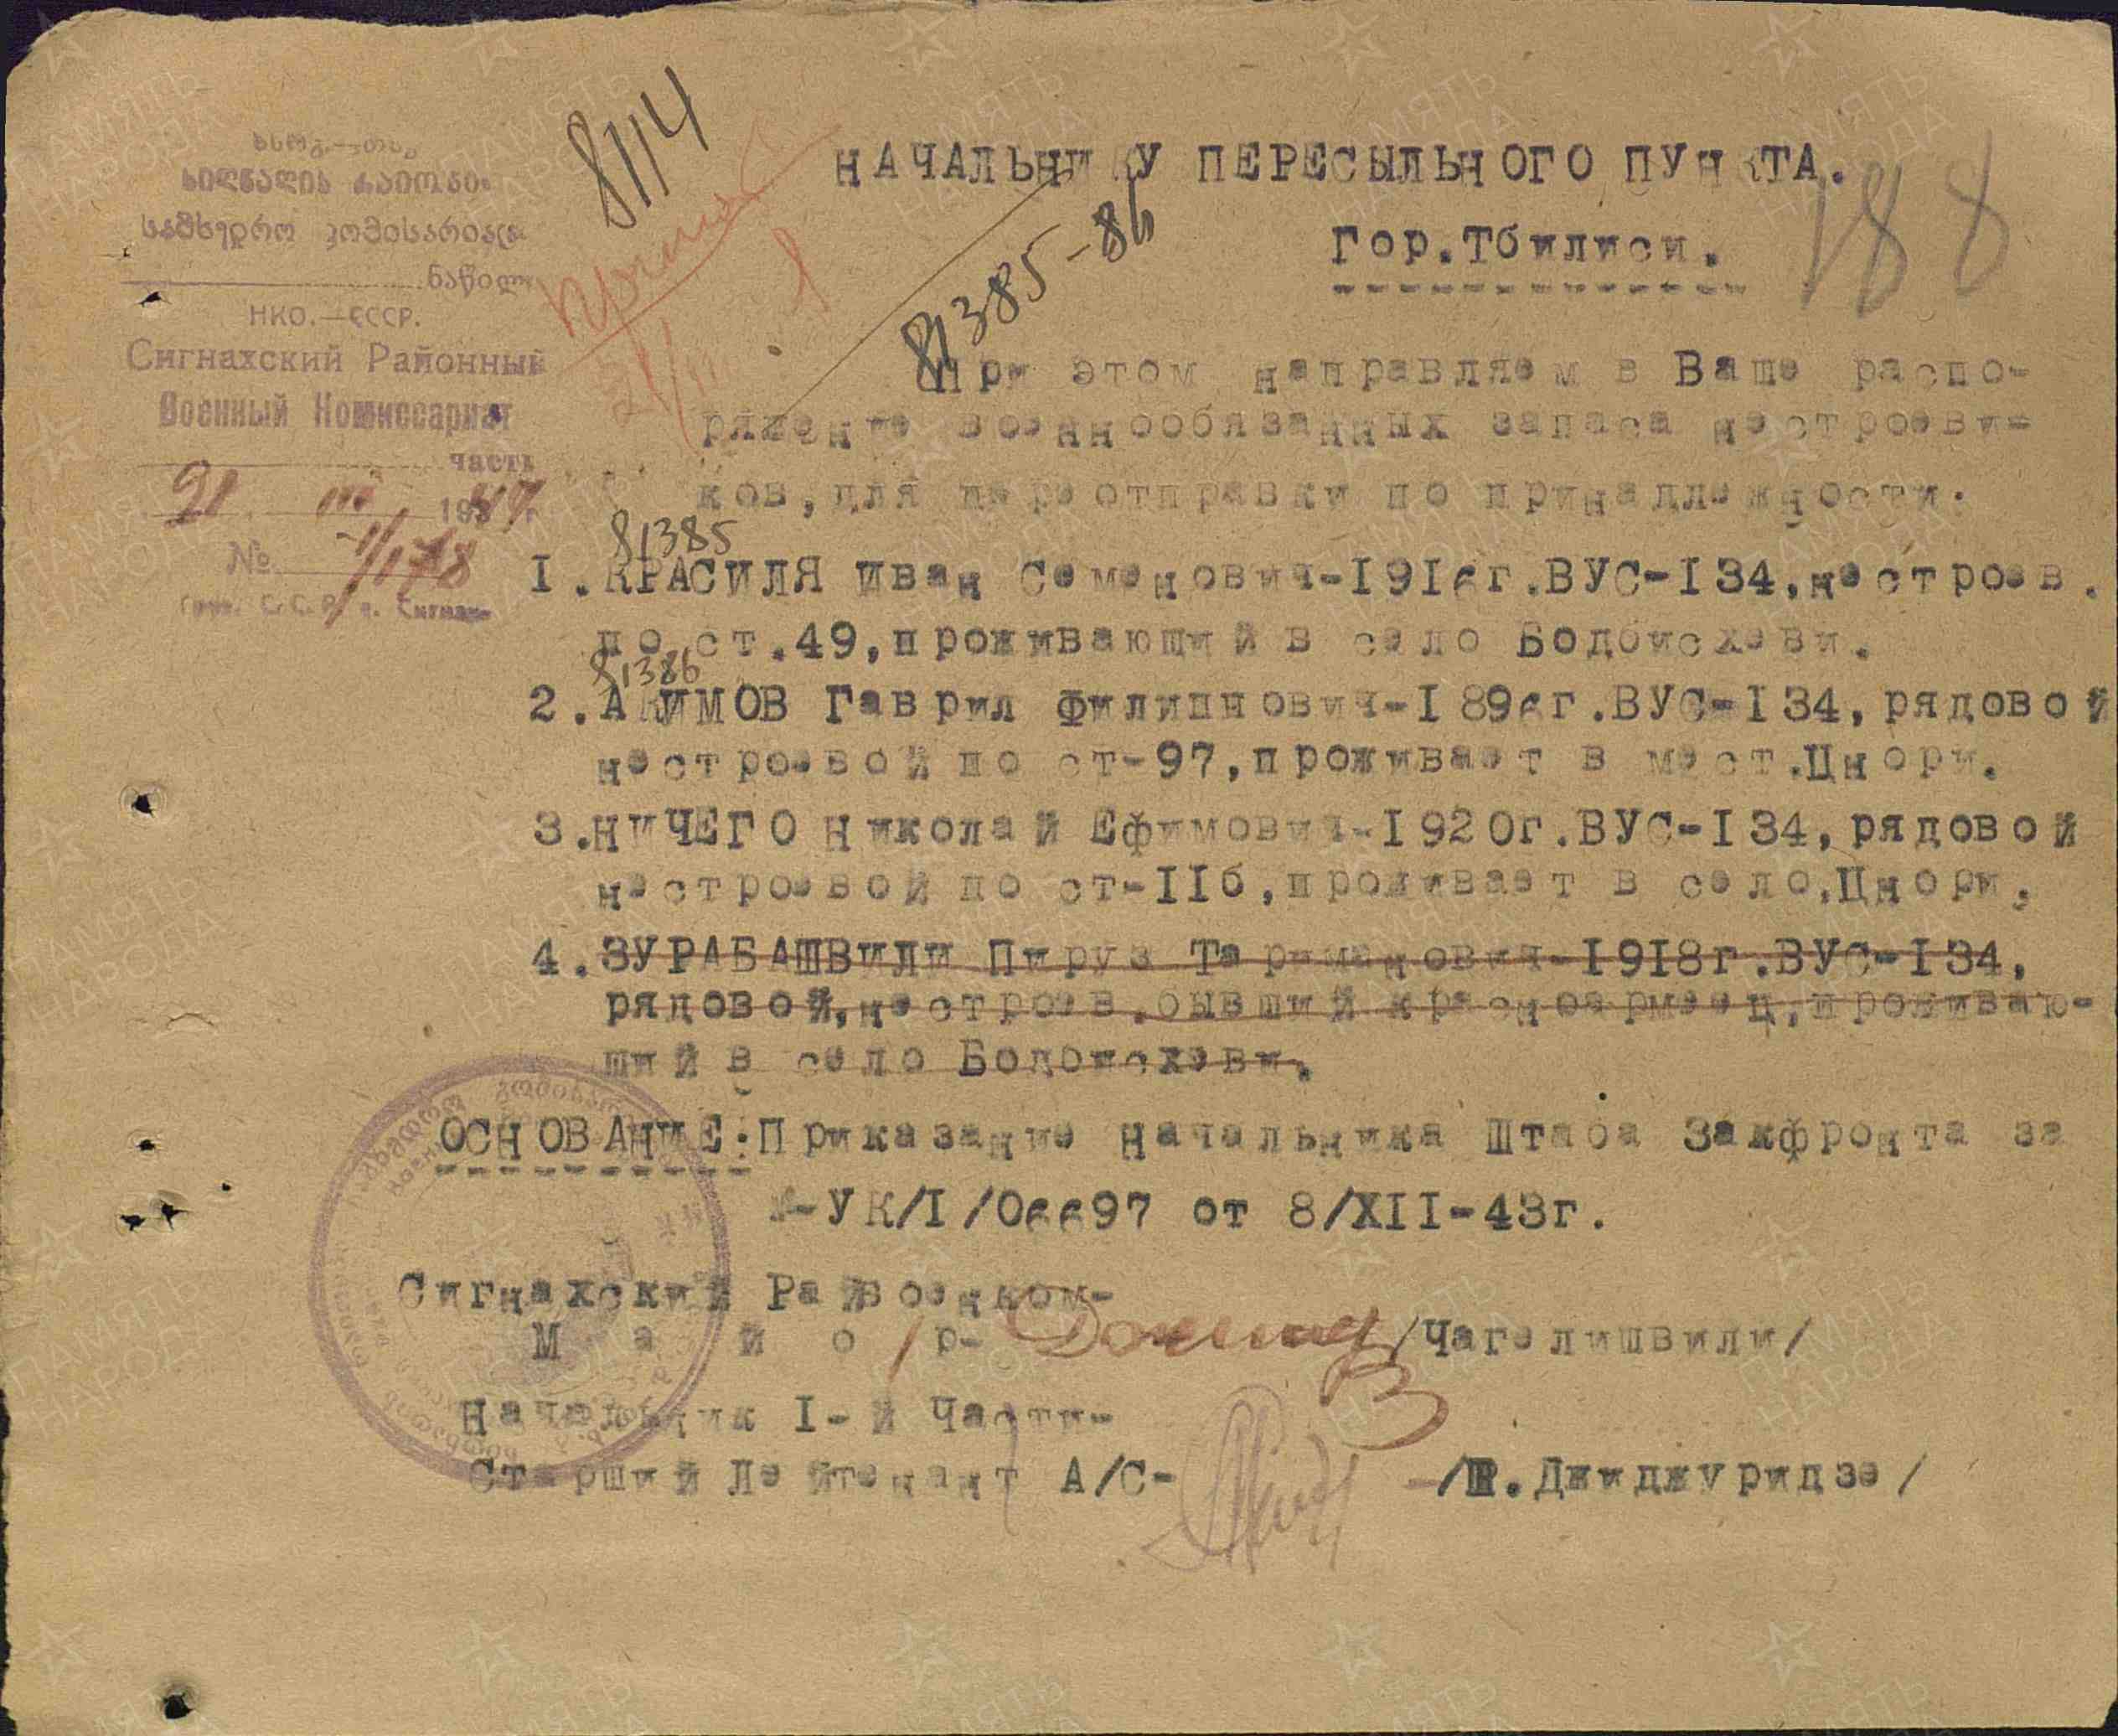 სიღნაღის რაიონის
სამხედრო კომისარიატი
ნაწილი
НКО.—СССР.
Сигнахский Районный
Военный Комиссариат
часть
№
8114
81385-86
188
НАЧАЛЬНИКУ ПЕРЕСЫЛЬНОГО ПУНКТА.
Гор.Тбилиси.
При этом направляем в Ваше распо-
ряжение военнообязанных запаса нестроеви-
ков,для переотправки по принадлежности.
81385
1.КРАСИЛЯ Иван Семенович-1916г.ВУС-134,нестроев.
по ст.49,проживающий в село Бодбисхеви.
81386
2.АКИМОВ Гаврил Филиппович-1896г.ВУС-134,рядовой
нестроевой по ст-97,проживает в мест.Цнори.
3.НИЧЕГО Николай Ефимович-1920г.ВУС-134,рядовой
нестроевой по ст-IIб,проживает в село.Цнори.
4.ЗУРАБАШВИЛИ Пируз Тариманович-1918г.ВУС-134,
рядовой,нестроев.бывший красноармеец,проживаю-
щий в село Бодбисхеви.
ОСНОВАНИЕ:Приказание начальника Штаба Закфронта за
№-УК/1/06697 от 8/XII-43г.
Сигнахский Райвоенком-
М а й о р- /Чагелишвили/
Начальник I-й Части-
Старший Лейтенант А/С- /П.Джиджуридзе/